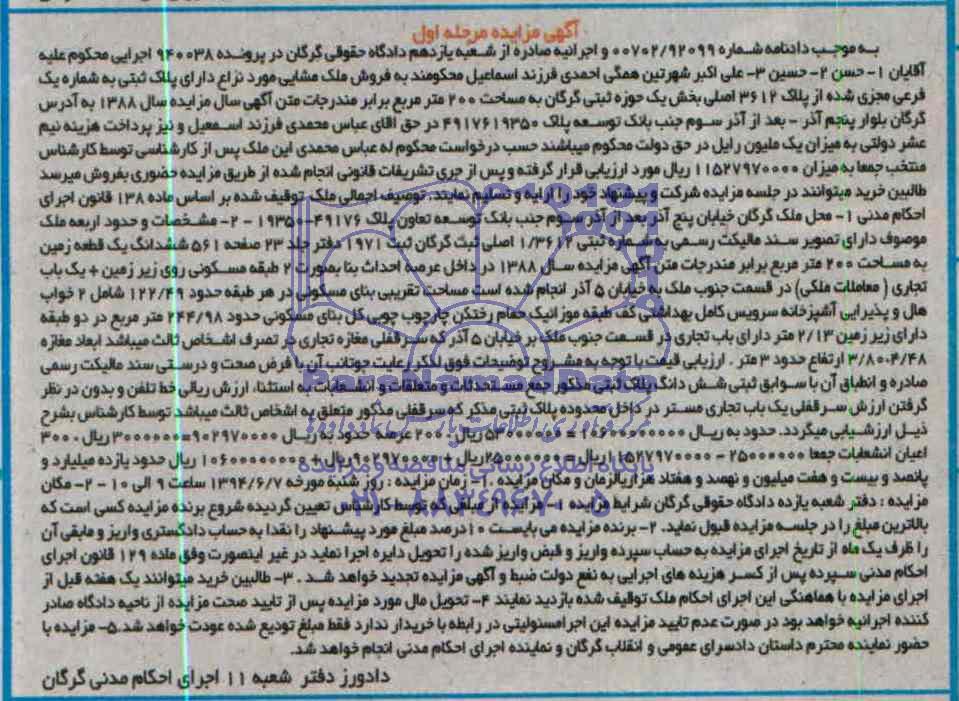 آگهی مزایده مرحله اول
به موجب دادنامه شماره 00702/92099 و اجرائیه صادره از شعبه یازدهم دادگاه حقوقی گرگان در پرونده 940038 اجرایی محکوم علیه
آقایان 1- حسن 2- حسین 3- علی اکبر شهرتین همگی احمدی فرزند اسماعیل محکومند به فروش ملک مشاعی مورد نزاع دارای پلاک ثبتی به شماره یک
فرعی مجزی شده از پلاک 3612 اصلی بخش یک حوزه ثبتی گرگان به مساحت 200 متر مربع برابر مندرجات متن آگهی سال مزایده سال 1388 به آدرس
گرگان بلوار پنجم آذر - بعد از آذر سوم جنب بانک توسعه پلاک 4917619350 در حق آقای عباس محمدی فرزند اسمعیل و نیز پرداخت هزینه نیم
عشر دولتی به میزان یک ملیون رایل در حق دولت محکوم میباشند حسب درخواست محکوم له عباس محمدی این ملک پس از کارشناسی توسط کارشناس
منتخب جمعا به میزان 11527970000 ریال مورد ارزیابی قرار گرفته و پس از جری تشریفات قانونی انجام شده از طریق مزایده حضوری بفروش میرسد
طالبین خرید میتوانند در جلسه مزایده شرکت و پیشنهاد خود را ارایه و تسلیم نمایند. توصیف اجمالی ملک توقیف شده بر اساس ماده 138 قانون اجرای
احکام مدنی 1- محل ملک گرگان خیابان پنج آذر بعد از آذر سوم جنب بانک توسعه تعاون پلاک 49176-19350 2- مشخصات و حدود اربعه ملک
موصوف دارای تصویر سند مالیکت رسمی به شماره ثبتی 1/3612 اصلی ثبت گرگان ثبت 1971 دفتر جلد 23 صفحه 561 ششدانگ یک قطعه زمین
به مساحت 200 متر مربع برابر مندرجات متن آگهی مزایده سال 1388 در داخل عرصه احداث بنا بصورت 2 طبقه مسکونی روی زیر زمین + یک باب
تجاری ( معاملات ملکی) در قسمت جنوب ملک به خیابان 5 آذر انجام شده است مساحت تقریبی بنای مسکونی در هر طبقه حدود 122/49 شامل 2 خواب
هال و پذیرایی آشپزخانه سرویس کامل بهداشتی کف طبقه موزائیک حمام رختکن چارچوب چوبی کل بنای مسکونی حدود 244/98 متر مربع در دو طبقه
دارای زیر زمین 2/13 متر دارای باب تجاری در قسمت جنوب ملک بر خیابان 5 آذر که سر قفلی مغازه تجاری در تصرف اشخاص ثالث میباشد ابعاد مغازه
3/80*4/48 ارتفاع حدود 3 متر . ارزیابی قیمت با توجه به مشروح توضیحات فوق لذکر رعایت جوانب آن با فرض صحت و درستی سند مالیکت رسمی
صادره و انطباق آن با سوابق ثبتی شش دانگ پلاک ثبتی مذکور جمع مستحدثات و متعلقات و انشعابات به استثناء ارزش ریالی خط تلفن و بدون در نظر
گرفتن ارزش سر قفلی یک باب تجاری مستر در داخل محدوده پلاک ثبتی مذکر که سر قفلی مذکور متعلق به اشخاص ثالث میباشد توسط کارشناس بشرح
ذیل ارزشیابی میگردد. حدود به ریال 10600000000 = 53000000 ریال* 200 عرصه حدود به ریال 902970000=3000000 ریال* 300
اعیان انشعابات جمعا 25000000 - 11527970000 ریال= 25000000 ریال + 902970000 ریال + 10600000000 ریال حدود یازده میلیارد و
پانصد و بیست و هفت میلیون و نهصد و هفتاد هزار ریال زمان و مکان مزایده . 1- زمان مزایده : روز شنبه مورخه 1394/6/7 ساعت 9 الی 10 - 2- مکان
مزایده : دفتر شعبه یازده دادگاه حقوقی گرگان شرایط مزایده 1- مزایده از مبلغی که توسط کارشناس تعیین گردیده شروع برنده مزایده کسی است که
بالاترین مبلغ را در جلسه مزایده قبول نماید. 2- برنده مزایده می بایست 10 درصد مبلغ مورد پیشنهاد را نقدا به حساب دادگستری واریز و مابقی آن
را ظرف یک ماه از تاریخ اجرای مزایده به حساب سپرده واریز و قبض واریز شده را تحویل دایره اجرا نماید در غیر اینصورت وفق ماده 129 قانون اجرای
احکام مدنی سپرده پس از کسر هزینه های اجرایی به نفع دولت ضبط و آگهی مزایده تجدید خواهد شد . 3- طالبین خرید میتوانند یک هفته قبل از
اجرای مزایده با هماهنگی این اجرای احکام ملک توقیف شده بازدید نمایند 4- تحویل مال مورد مزایده پس از تایید صحت مزایده از ناحیه دادگاه صادر
کننده اجرائیه خواهد بود در صورت عدم تایید مزایده این اجرا مسئولیتی در رابطه با خریدار ندارد فقط مبلغ تودیع شده عودت خواهد شد.5- مزایده با
حضور نماینده محترم داستان دادسرای عمومی و انقلاب گرگان و نماینده اجرای احکام مدنی انجام خواهد شد.
دادورز دفتر شعبه 11 اجرای احکام مدنی گرگان
پایگاه اطلاع رسانی مناقصه و مزایده